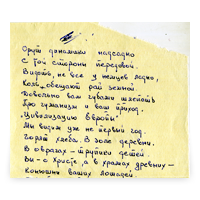 Орут динамики надсадно
С той стороны передовой.
Видать, не все у немцев ладно,
Коль обещают рай земной.
Довольно вам губами шлёпать
Про гуманизм и ваш приход.
"Цивилизацию Европы"
Мы видим уже не первый год.
Горят хлеба. В золе деревни.
В оврагах - трупики детей.
Ви-о Христе, а в храмах древних -
Конюшни ваших лошадей.